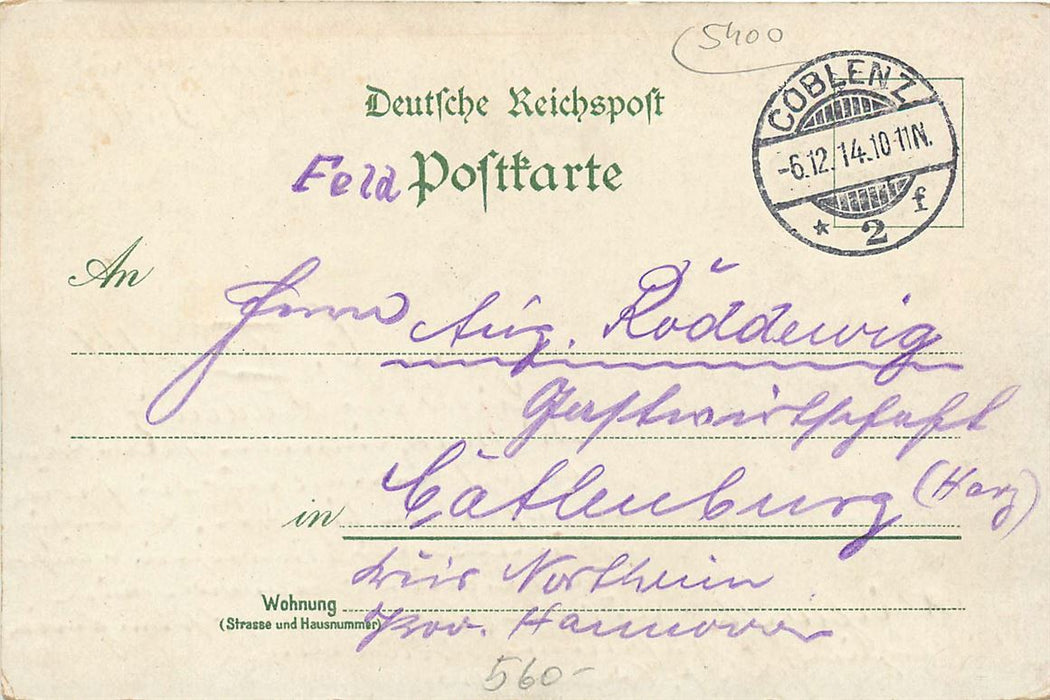 5400
COBLENZ
-6.12.14.10-11N.
* 2 f
Deutsche Reichspost
Feld Postkarte
An
Herrn Aug. Röddewig
Gastwirtschaft
in Catlenburg (Harz)
Kreis Northeim
Wohnung
(Strasse und Hausnummer)
Prov. Hannover
560-